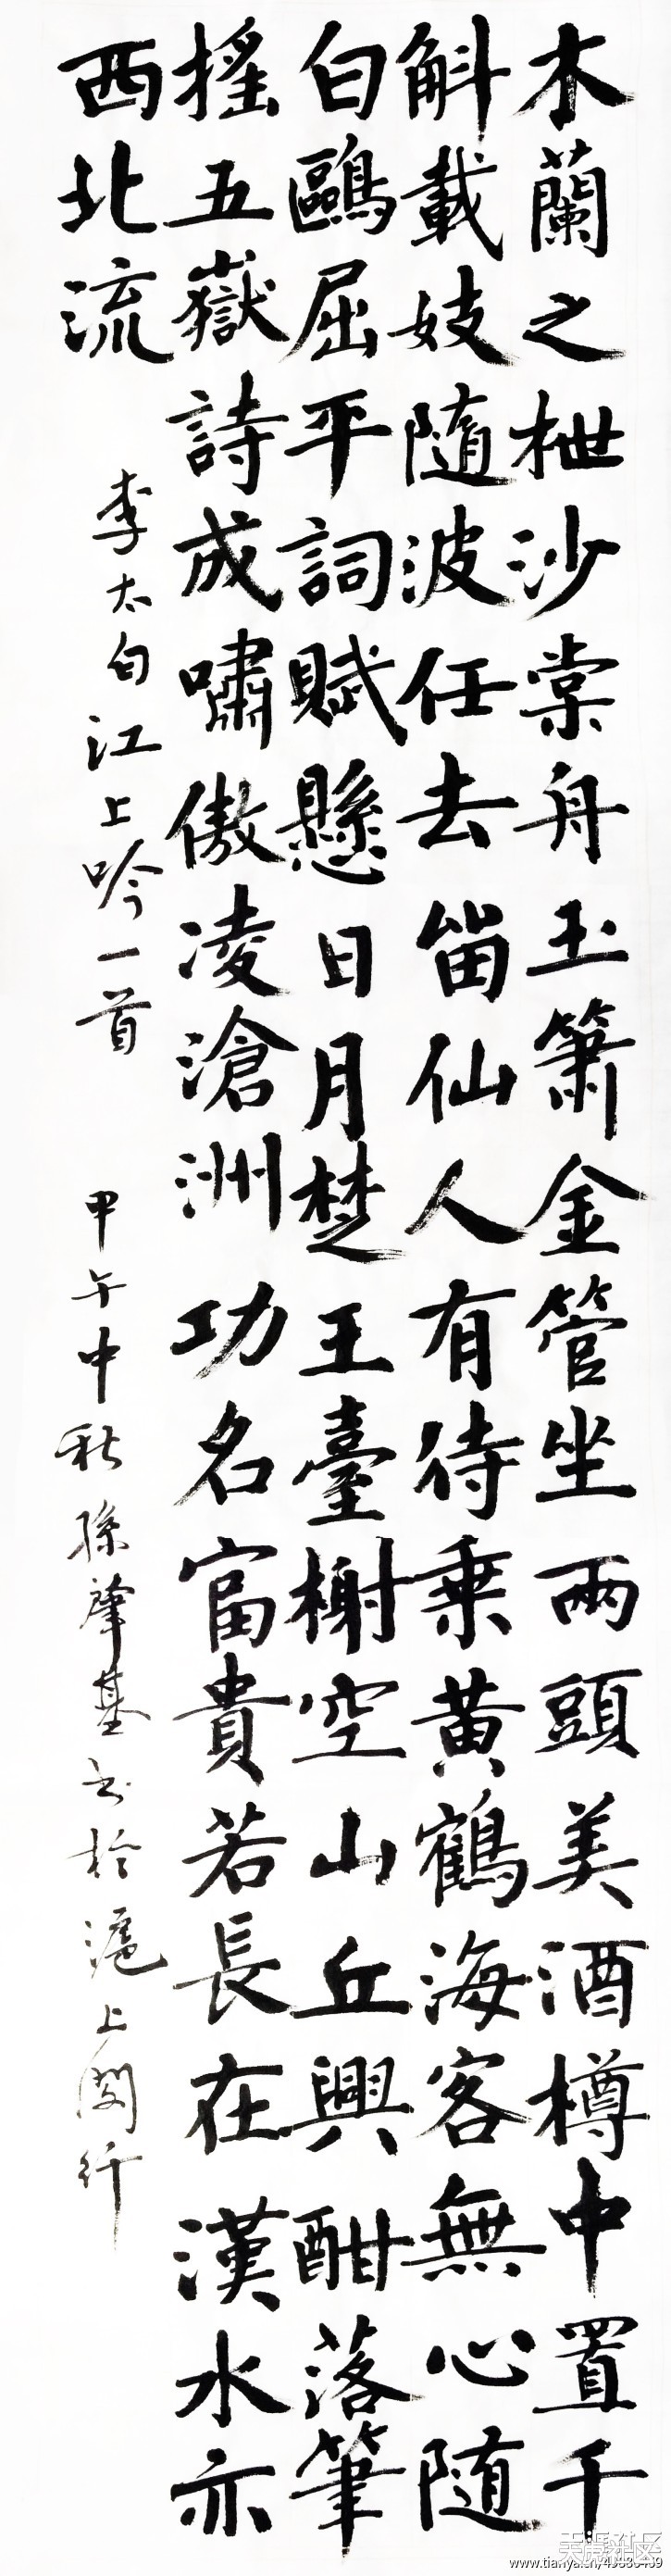 木蘭之枻沙棠舟玉簫金管坐兩頭美酒樽中置千
斛載妓隨波任去留仙人有待乗黄鶴海客無心随
白鷗屈平詞賦懸日月楚王臺榭空山丘興酣落筆
摇五嶽詩成嘯傲凌滄洲功名富貴若長在漢水亦
西北流
李太白江上吟一首
甲午中秋孫肇基书於滬上閔行
天涯社区